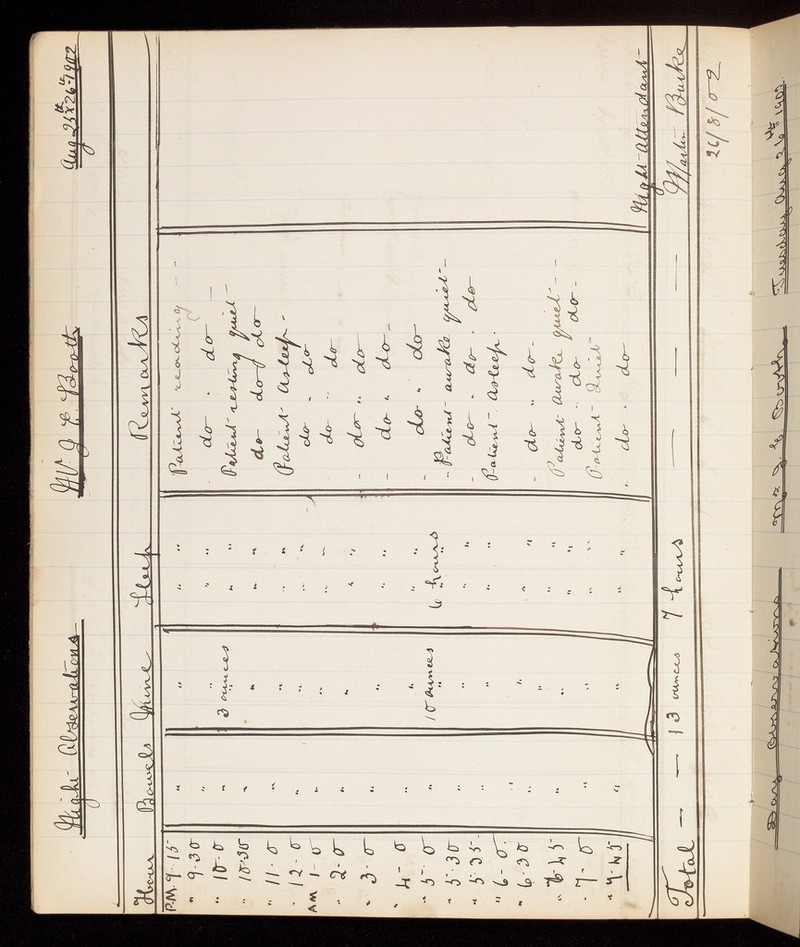 Night-Observations Mr J. E. Booth Aug 25th & 26th 1902
Hour Bowels Urine Sleep Remarks
P.M. 9-15 " " " " Patient reading - -
" 9-30 " " " " do " do
" 10-0 " 3 ounces " " Patient resting quiet -
" 10-30 " " " " do do do
" 11-0 " " " " Patient Asleep -
" 12-0 " " " " do - do
AM 1-0 " " " " do " do
" 2-0 " " " " do " do
" 3-0 " " " " do " do -
" 4-0 " " " " do " do
" 5-0 " 10 ounces 6 hours " Patient awake quiet -
" 5-30 " " " " do - do - do
" 5-35 " " " " Patient - Asleep -
" 6-0 " " " " do " do -
" 6-30 " " " " Patient awake quiet - -
" 6-45 " " " " do " do do -
" 7-0 " " " " Patient - Quiet -
" 7-45 " " " " do " do
Night-Attendant-
Total - - 13 ounces 7 hours - - - Martin Burke
26/8/02
Day Observations Mr J. E. Booth Tuesday Aug 26th 1902